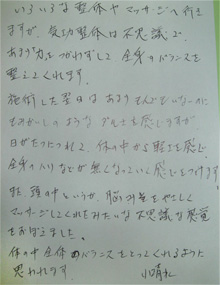 いろいろな整体やマッサージへ行き
ますが、気功整体は不思議で
あまり力をつかわずして全身のバランスを
整えてくれます。
施術した翌日はあまりもんでもいないのに
もみかえしのような だるさを感じますが
日がたつにつれて、体の中から軽さを感じ
全身のハリなどが無くなっていく感じをうけます。
また 頭の中というか、脳みそをやさしく
マッサージしてくれたみたいな不思議な感覚
をおぼえました。
体の中全体のバランスをとってくれるように
思われます。